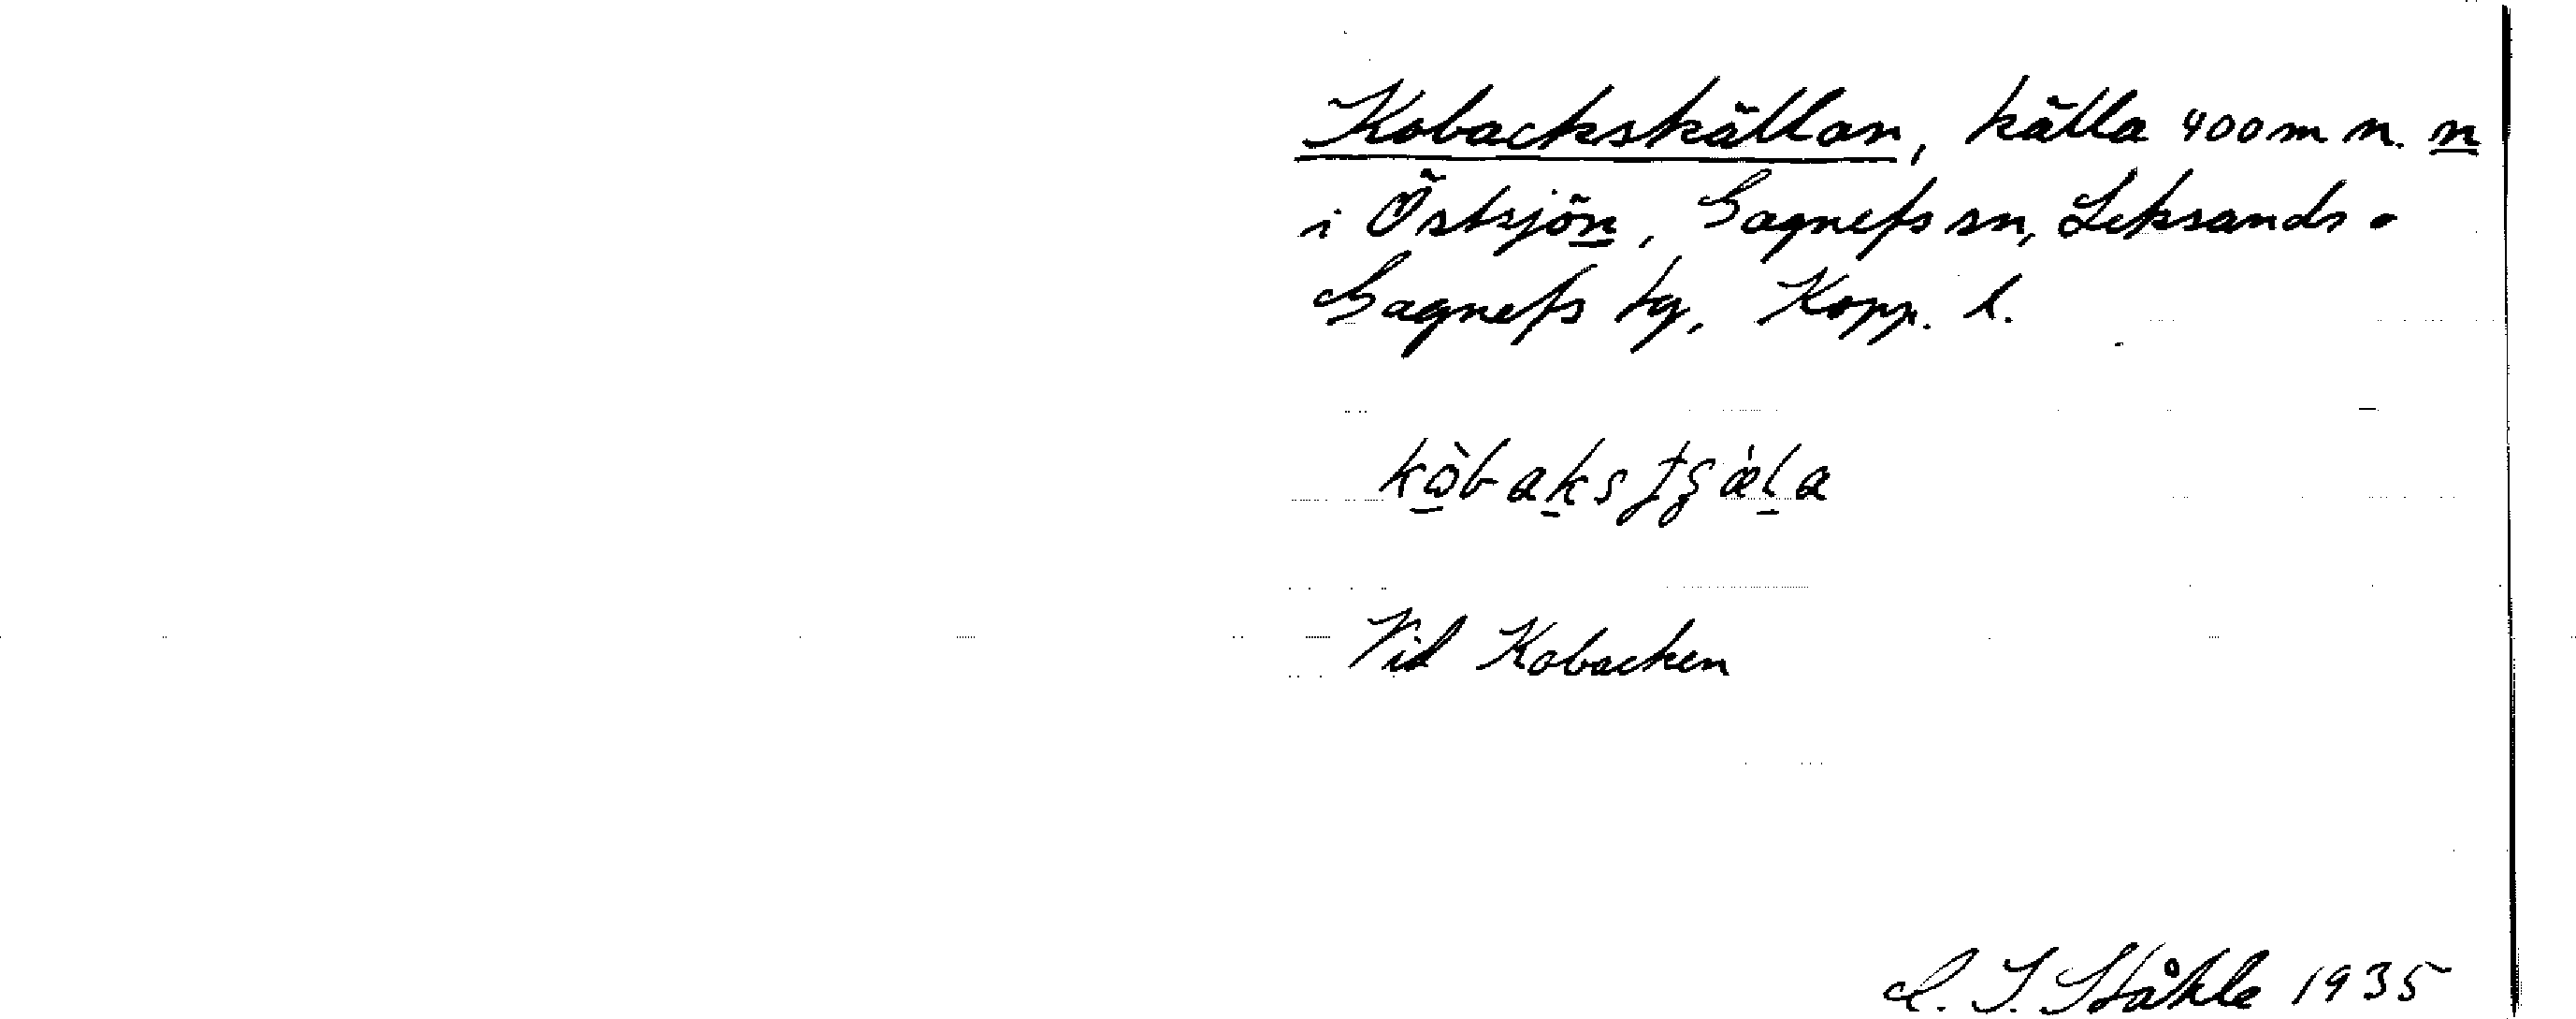 Kobackskällan, källa 400 m n. n
i Östsjön, Gagnefs sn, Leksands o
Gagnefs tg, Kopp. l.
Vid Kobacken
C. I. Ståhle 1935